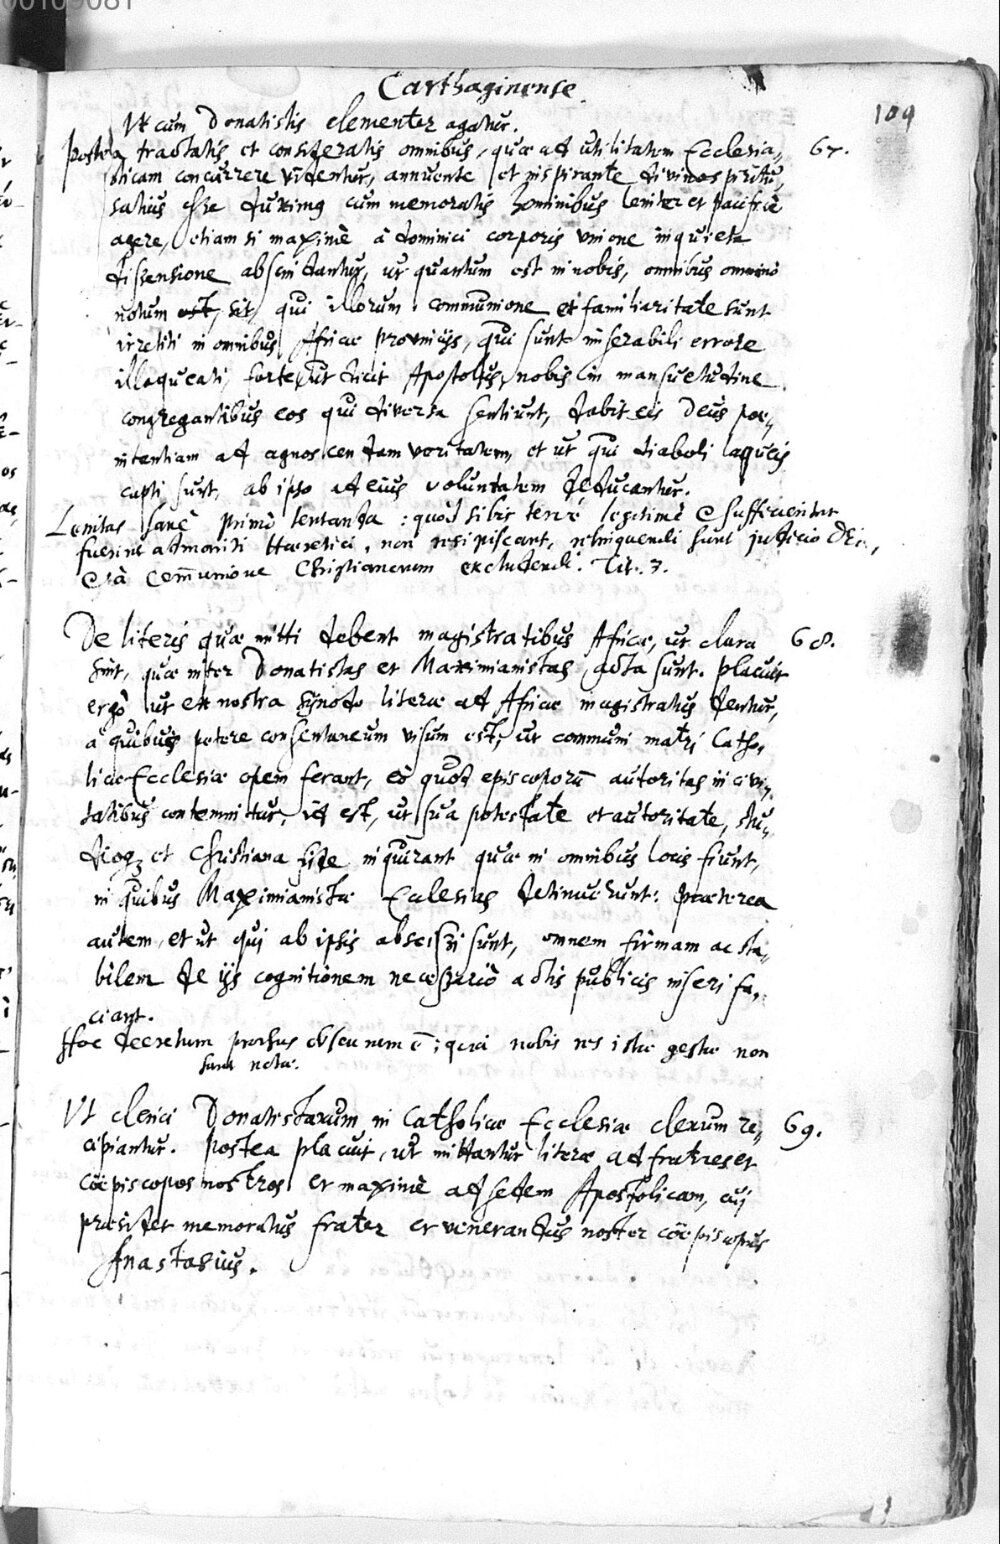 00109081
Carthaginense
109
Ut cum Donatistis clementer agatur.
Postea tractatis et consideratis omnibus, quæ ad utilitatem Ecclesia- 67.
sticam concurrere videntur, annuente et inspirante divino spiritu,
satius esse duximus cum memoratis hominibus leniter et pacificè
agere, etiam si maximè à dominici corporis unione inquieta
dissensione abscindantur, ut quantum est in nobis, omnibus omninò
notum est, sit, qui illorum communione et familiaritate sunt
irretiti in omnibus Africæ provincijs, qui sunt miserabili errore
illaqueati, forte, ut dicit Apostolus, nobis in mansuetudine
congregantibus eos qui diversa sentiunt, dabit eis Deus pœ-
nitentiam ad agnoscendam veritatem, et ut qui diaboli laqueis
capti sunt, ab ipso ad eius voluntatem deducantur.
Lenitas sanè primò tentanda: quòd si bis terve legitimè & sufficienter
fuerint admoniti Hæretici, non resipiscant, relinquendi sunt judicio Dei,
& à Communione Christianorum excludendi. Tit. 3.
De literis quæ mitti debent magistratibus Africæ, ut clara 68.
sint, quæ inter Donatistas et Maximianistas acta sunt. Placuit
ergò ut ex nostra synodo literæ ad Africæ magistratus dentur,
a quibus petere consentaneum visum est, ut communi matri Catho-
licæ Ecclesiæ opem ferant, eò quòd episcoporum autoritas in civi-
tatibus contemnitur, id est, ut sua potestate et autoritate, stu-
dioq; et Christiana fide inquirant quæ in omnibus locis fiunt,
in quibus Maximianistæ Ecclesias detinuerunt: præterea
autem, et ut qui ab ipsis abscissi sunt, omnem firmam ac sta-
bilem de ijs cognitionem necessariò actis publicis inseri fa-
ciant.
Hoc decretum prorsus obscurum ē; quia nobis res istæ gestæ non
sunt notæ.
Ut clerici Donatistarum in Catholicæ Ecclesiæ clerum re- 69.
cipiantur. Postea placuit, ut mittantur literæ ad fratres et
cōepiscopos nostros et maximè ad sedem Apostolicam, cui
præsidet memoratus frater et venerandus noster cōepiscopus
Anastasius.